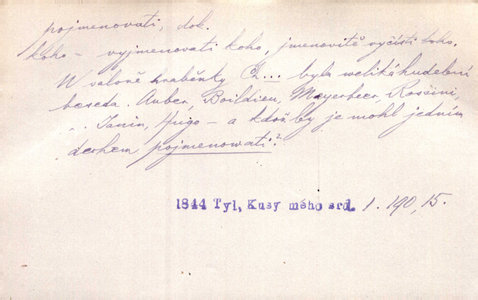 pojmenovati, dok.
koho – vyjmenovati koho, jmenovitě vyčísti koho.
W sálově hraběnky Ch... byla weliká hudební
beseda. Auber, Boildieu, Mayerbeer, Rossini,
... Janin, Hugo – a kdož by je mohl jedním
dechem pojmenowati?
1844 Tyl, Kusy mého srd. 1. 190, 15.